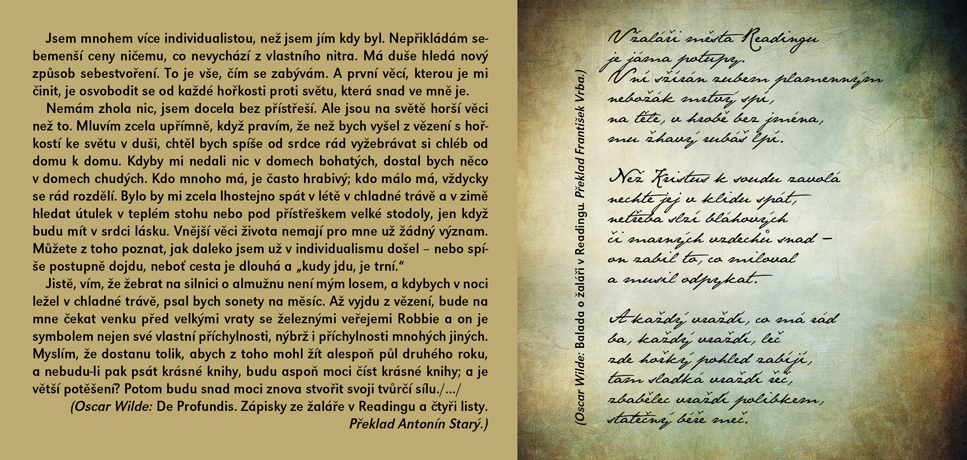 Jsem mnohem více individualistou, než jsem jím kdy byl. Nepřikládám se-
bemenší ceny ničemu, co nevychází z vlastního nitra. Má duše hledá nový
způsob sebestvoření. To je vše, čím se zabývám. A první věcí, kterou je mi
činit, je osvobodit se od každé hořkosti proti světu, která snad ve mně je.
Nemám zhola nic, jsem docela bez přístřeší. Ale jsou na světě horší věci
než to. Mluvím zcela upřímně, když pravím, že než bych vyšel z vězení s hoř-
kostí ke světu v duši, chtěl bych spíše od srdce rád vyžebrávat si chléb od
domu k domu. Kdyby mi nedali nic v domech bohatých, dostal bych něco
v domech chudých. Kdo mnoho má, je často hrabivý; kdo málo má, vždycky
se rád rozdělí. Bylo by mi zcela lhostejno spát v létě v chladné trávě a v zimě
hledat útulek v teplém stohu nebo pod přístřeškem velké stodoly, jen když
budu mít v srdci lásku. Vnější věci života nemají pro mne už žádný význam.
Můžete z toho poznat, jak daleko jsem už v individualismu došel – nebo spí-
še postupně dojdu, neboť cesta je dlouhá a „kudy jdu, je trní.“
Jistě, vím, že žebrat na silnici o almužnu není mým losem, a kdybych v noci
ležel v chladné trávě, psal bych sonety na měsíc. Až vyjdu z vězení, bude na
mne čekat venku před velkými vraty se železnými veřejemi Robbie a on je
symbolem nejen své vlastní příchylnosti, nýbrž i příchylnosti mnohých jiných.
Myslím, že dostanu tolik, abych z toho mohl žít alespoň půl druhého roku,
a nebudu-li pak psát krásné knihy, budu aspoň moci číst krásné knihy; a je
větší potěšení? Potom budu snad moci znova stvořit svoji tvůrčí sílu./.../
(Oscar Wilde: De Profundis. Zápisky ze žaláře v Readingu a čtyři listy.
Překlad Antonín Starý.)
(Oscar Wilde: Balada o žaláři v Readingu. Překlad František Vrba.)
V žaláři města Readingu
je jáma potupy.
V ní sžírán zubem plamenným
nebožák mrtvý spí,
na těle, v hrobě bez jména,
mu žhavý rubáš lpí.
Než Kristus k soudu zavolá
nechte jej v klidu spát,
netřeba slzí bláhových
či marných vzdechů snad –
on zabil to, co miloval
a musil odpykat.
A každý vraždí, co má rád
ba, každý vraždí, leč
zde hořký pohled zabíjí,
tam sladká vraždí řeč,
zbabělec vraždí polibkem,
statečný béře meč.